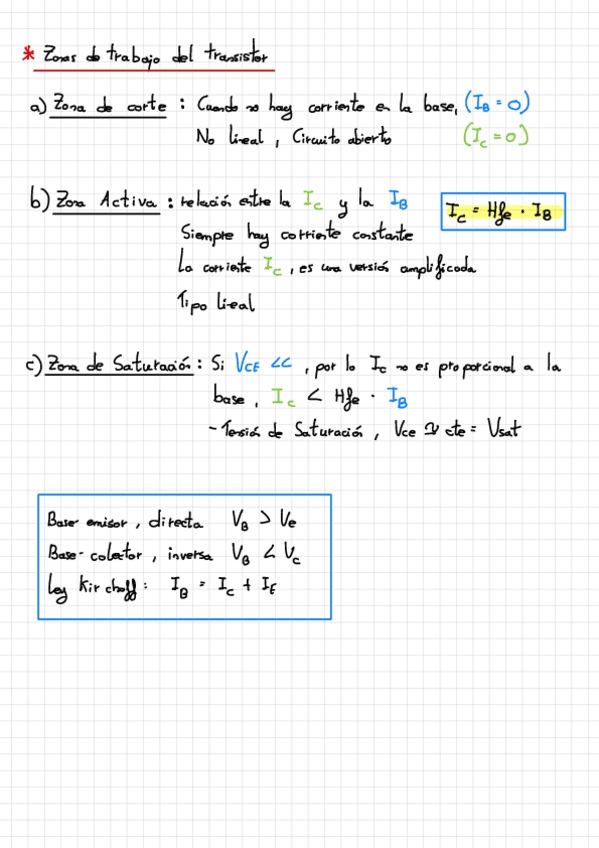 * Zonas de trabajo del transistor
a) Zona de corte : Cuando no hay corriente en la base, (I_B = 0)
No lineal, Circuito abierto (I_C = 0)
b) Zona Activa : relación entre la I_C y la I_B I_C = Hfe · I_B
Siempre hay corriente constante
La corriente I_C, es una versión amplificada
Tipo lineal
c) Zona de Saturación : Si V_CE <<, por lo I_C no es proporcional a la
base, I_C < Hfe · I_B
- Tensión de Saturación, Vce ≃ cte = Vsat
Base-emisor, directa V_B > V_e
Base-colector, inversa V_B < V_C
Ley Kirchoff: I_B = I_C + I_E